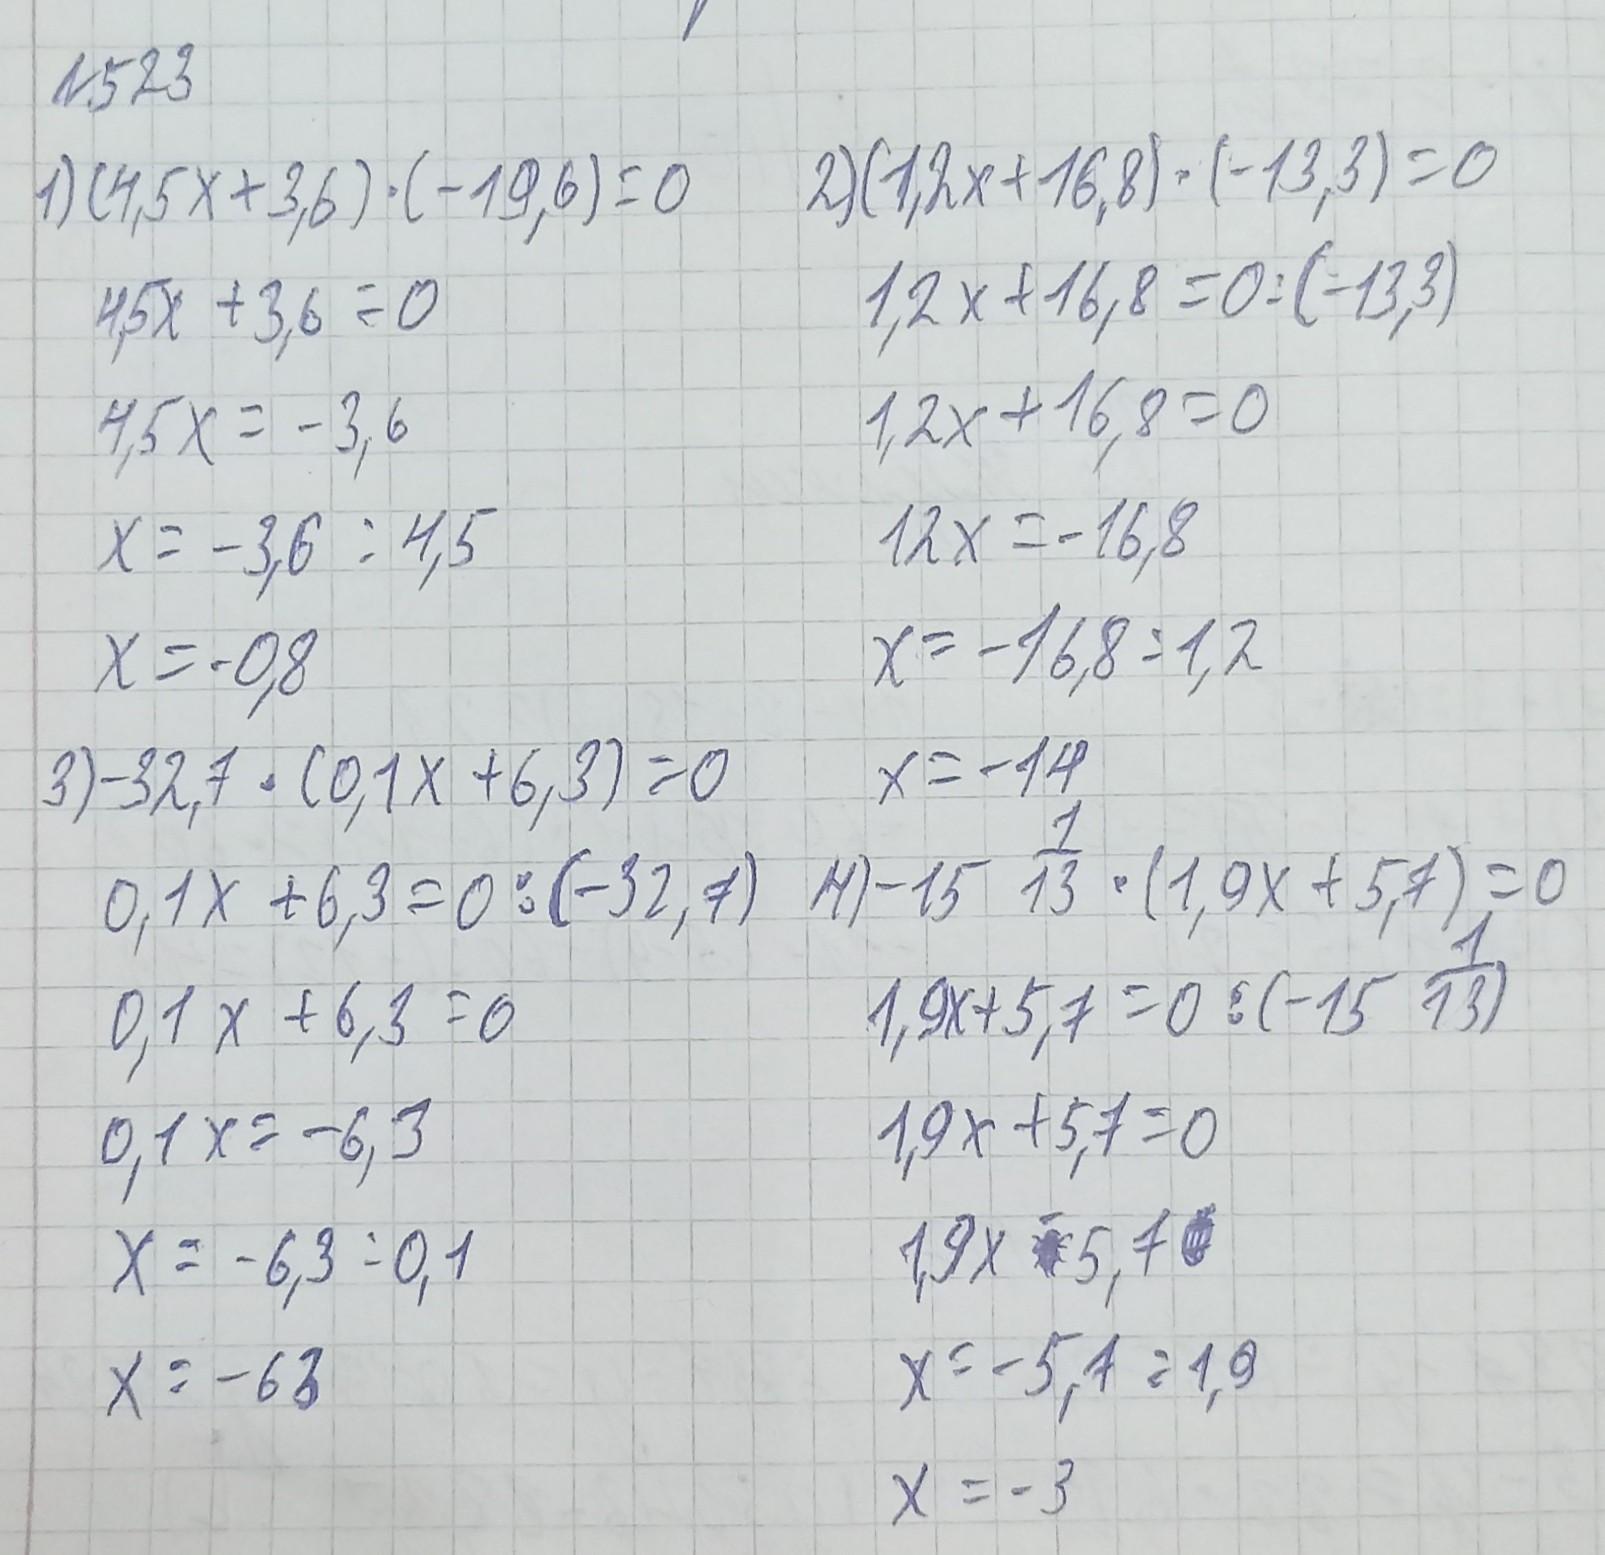 №523
1) (4,5x + 3,6) · (-19,6) = 0
4,5x + 3,6 = 0
4,5x = -3,6
x = -3,6 : 4,5
x = -0,8
2) (1,2x + 16,8) · (-13,3) = 0
1,2x + 16,8 = 0 : (-13,3)
1,2x + 16,8 = 0
12x = -16,8
x = -16,8 : 1,2
x = -14
3) -32,7 · (0,1x + 6,3) = 0
0,1x + 6,3 = 0 : (-32,7)
0,1x + 6,3 = 0
0,1x = -6,3
x = -6,3 : 0,1
x = -63
4) -15 1/13 · (1,9x + 5,7) = 0
1,9x + 5,7 = 0 : (-15 1/13)
1,9x + 5,7 = 0
1,9x = 5,7
x = -5,7 : 1,9
x = -3